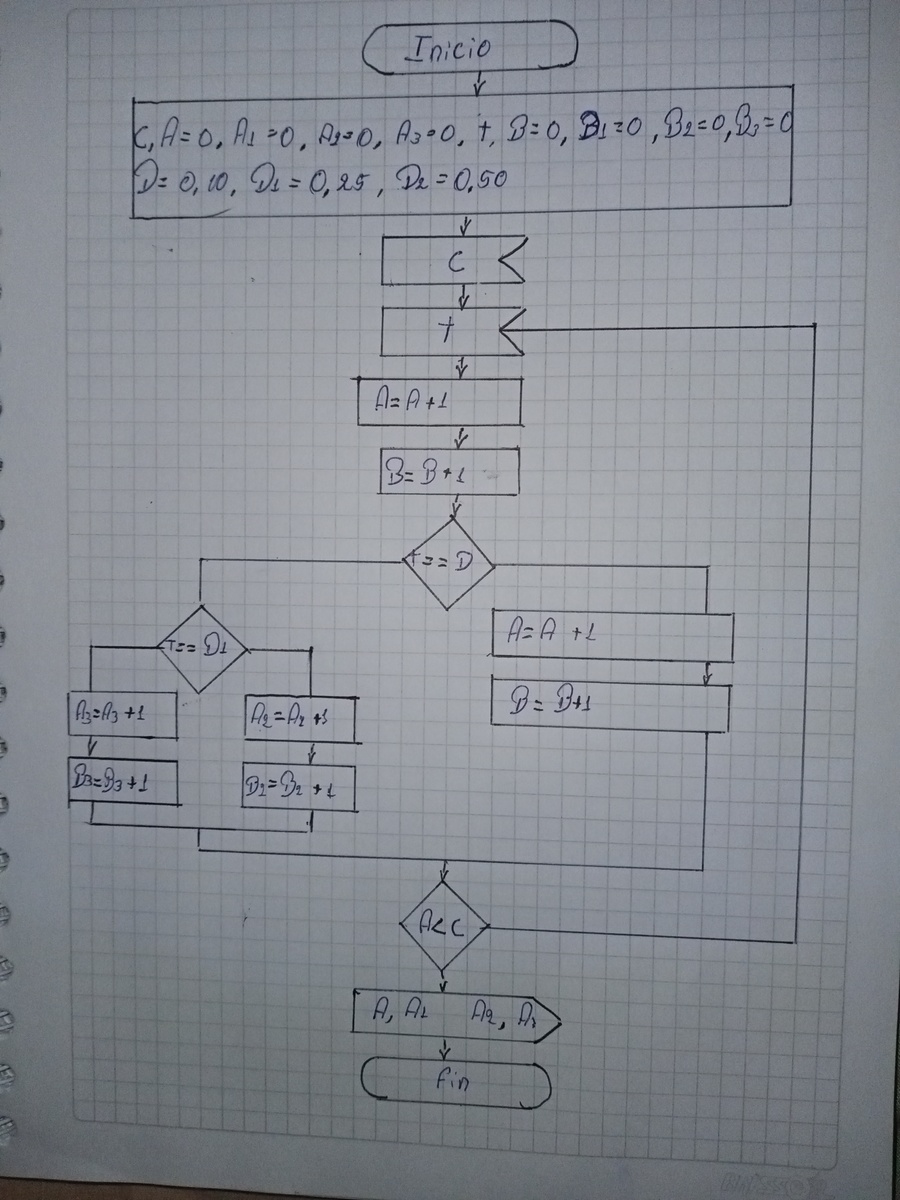 Inicio
C, A=0, A1=0, A2=0, A3=0, t, B=0, B1=0, B2=0, B3=0
D=0,10, D1=0,25, D2=0,50
C
t
A=A+1
B=B+1
t==D
A=A+1
T==D1
B=B+1
A3=A3+1
A2=A2+1
B3=B3+1
B2=B2+1
A<C
A, A1 A2,
Fin